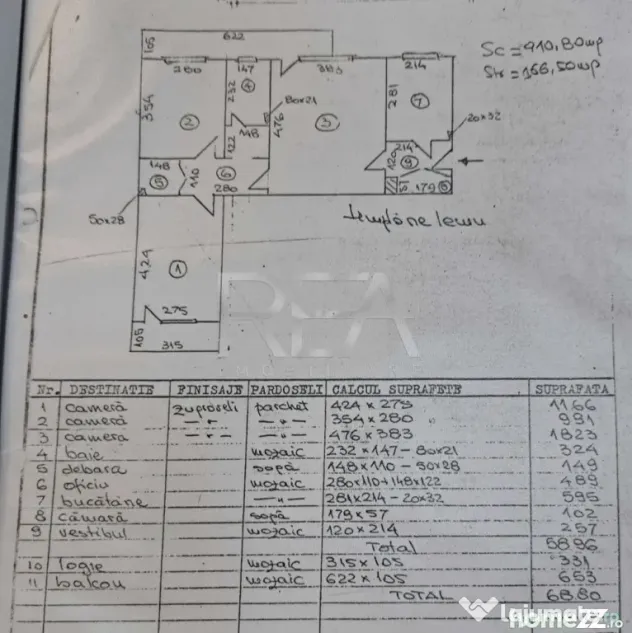 622
105
260
147
383
214
Sc = 410,80mp
Su = 166,50mp
354
232
4
80x21
281
7
2
148
476
3
20x32
122
214
120
9
148
5
110
6
280
179
8
50x28
tâmplărie lemn
424
1
275
105
315
REA
Nr. DESTINATIE FINISAJE PARDOSELI CALCUL SUPRAFETE SUPRAFATA
1 cameră zugrăveli parchet 424 x 275 1166
2 cameră —〃— —〃— 354 x 280 991
3 camera —〃— —〃— 476 x 383 1823
4 baie mozaic 232 x 147 - 80x21 324
5 debara șapă 148 x 110 - 50x28 149
6 oficiu mozaic 280x110 + 148x122 489
7 bucătărie —〃— 281x214 - 20x32 595
8 cămară șapă 179 x 57 102
9 vestibul mozaic 120 x 214 257
Total 5896
10 logie mozaic 315 x 105 331
11 balcon mozaic 622 x 105 653
TOTAL 6880
lajumate.ro
homezz.ro